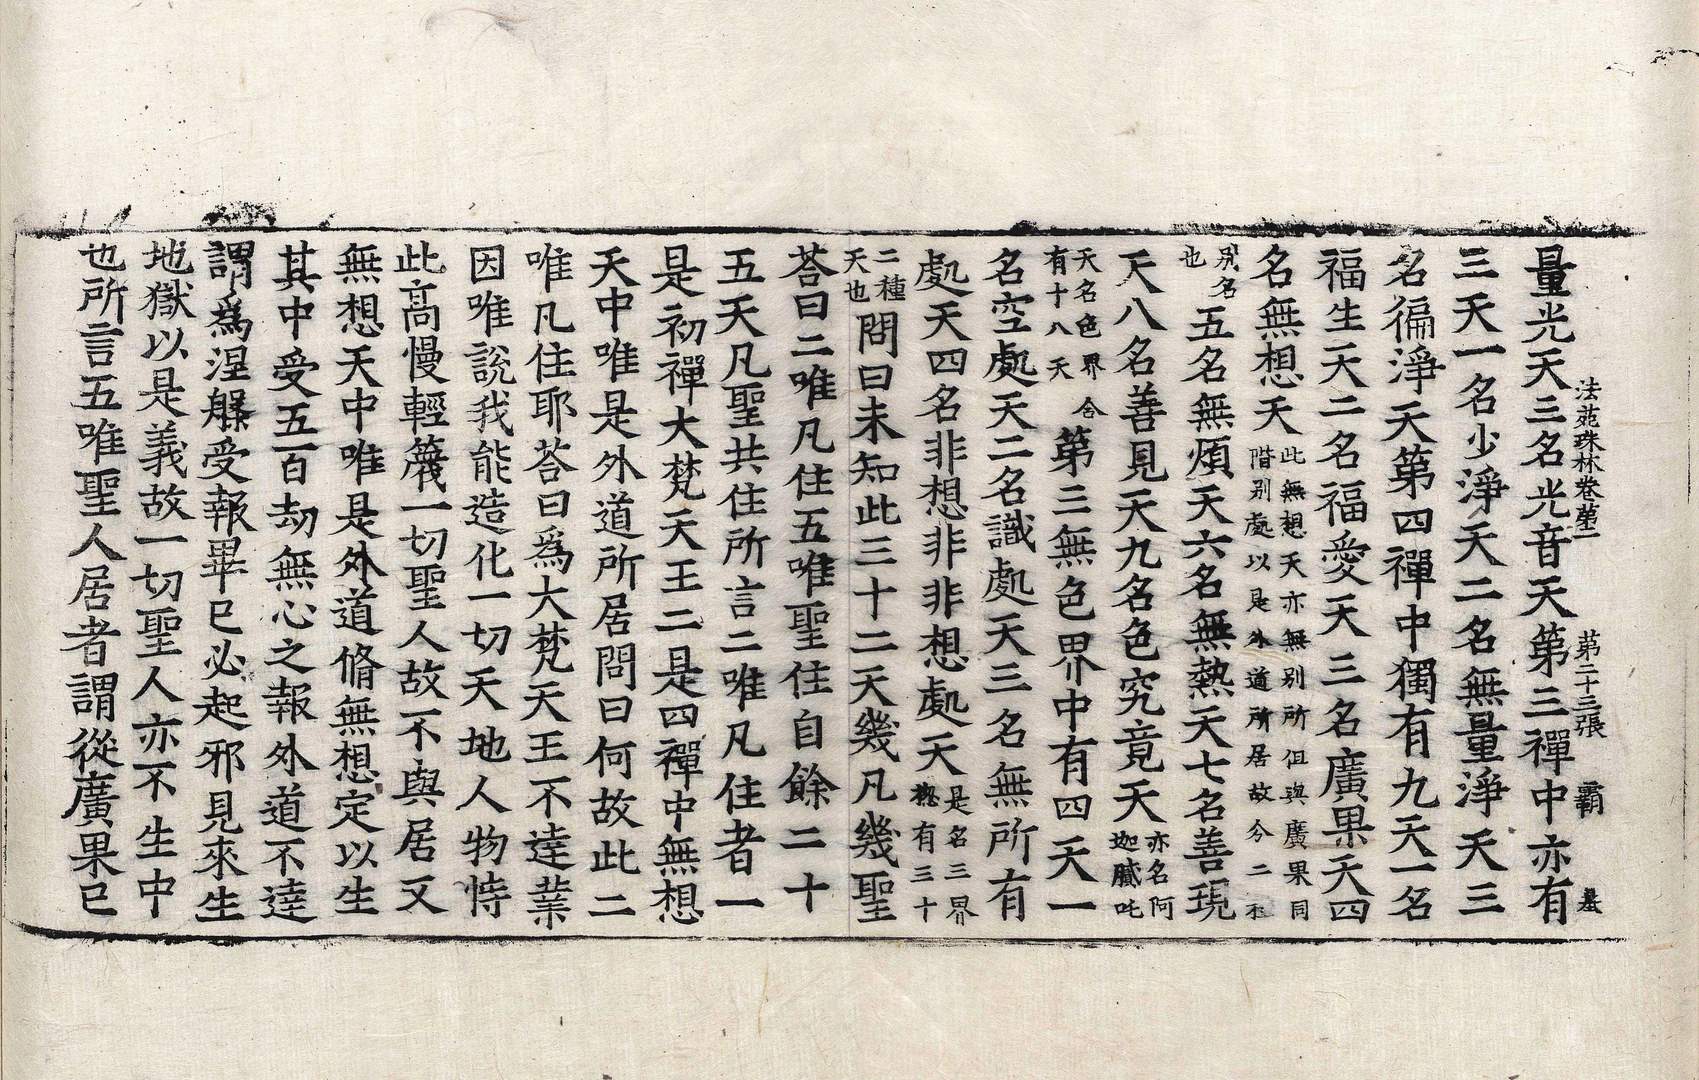 法苑珠林卷苐二 苐二十三張 覇
量光天三名光音天第三禪中亦有
三天一名少淨天二名無量淨天三
名徧淨天第四禪中獨有九天一名
福生天二名福愛天三名廣果天四
名無想天此無想天亦無别所但與廣果同階别處以是外道所居故分二種
别名也五名無煩天六名無熱天七名善現
天八名善見天九名色究竟天亦名阿迦膩吒
天名色界合有十八天第三無色界中有四天一
名空處天二名識處天三名無所有
處天四名非想非非想處天是名三界揔有三十
二種天也問曰未知此三十二天幾凡幾聖
荅曰二唯凡住五唯聖住自餘二十
五天凡聖共住所言二唯凡住者一
是初禪大梵天王二是四禪中無想
天中唯是外道所居問曰何故此二
唯凡住耶荅曰爲大梵天王不達業
因唯說我能造化一切天地人物恃
此高慢輕篾一切聖人故不與居又
無想天中唯是外道脩無想定以生
其中受五百劫無心之報外道不達
謂爲涅槃受報畢已必起邪見來生
地獄以是義故一切聖人亦不生中
也所言五唯聖人居者謂從廣果已